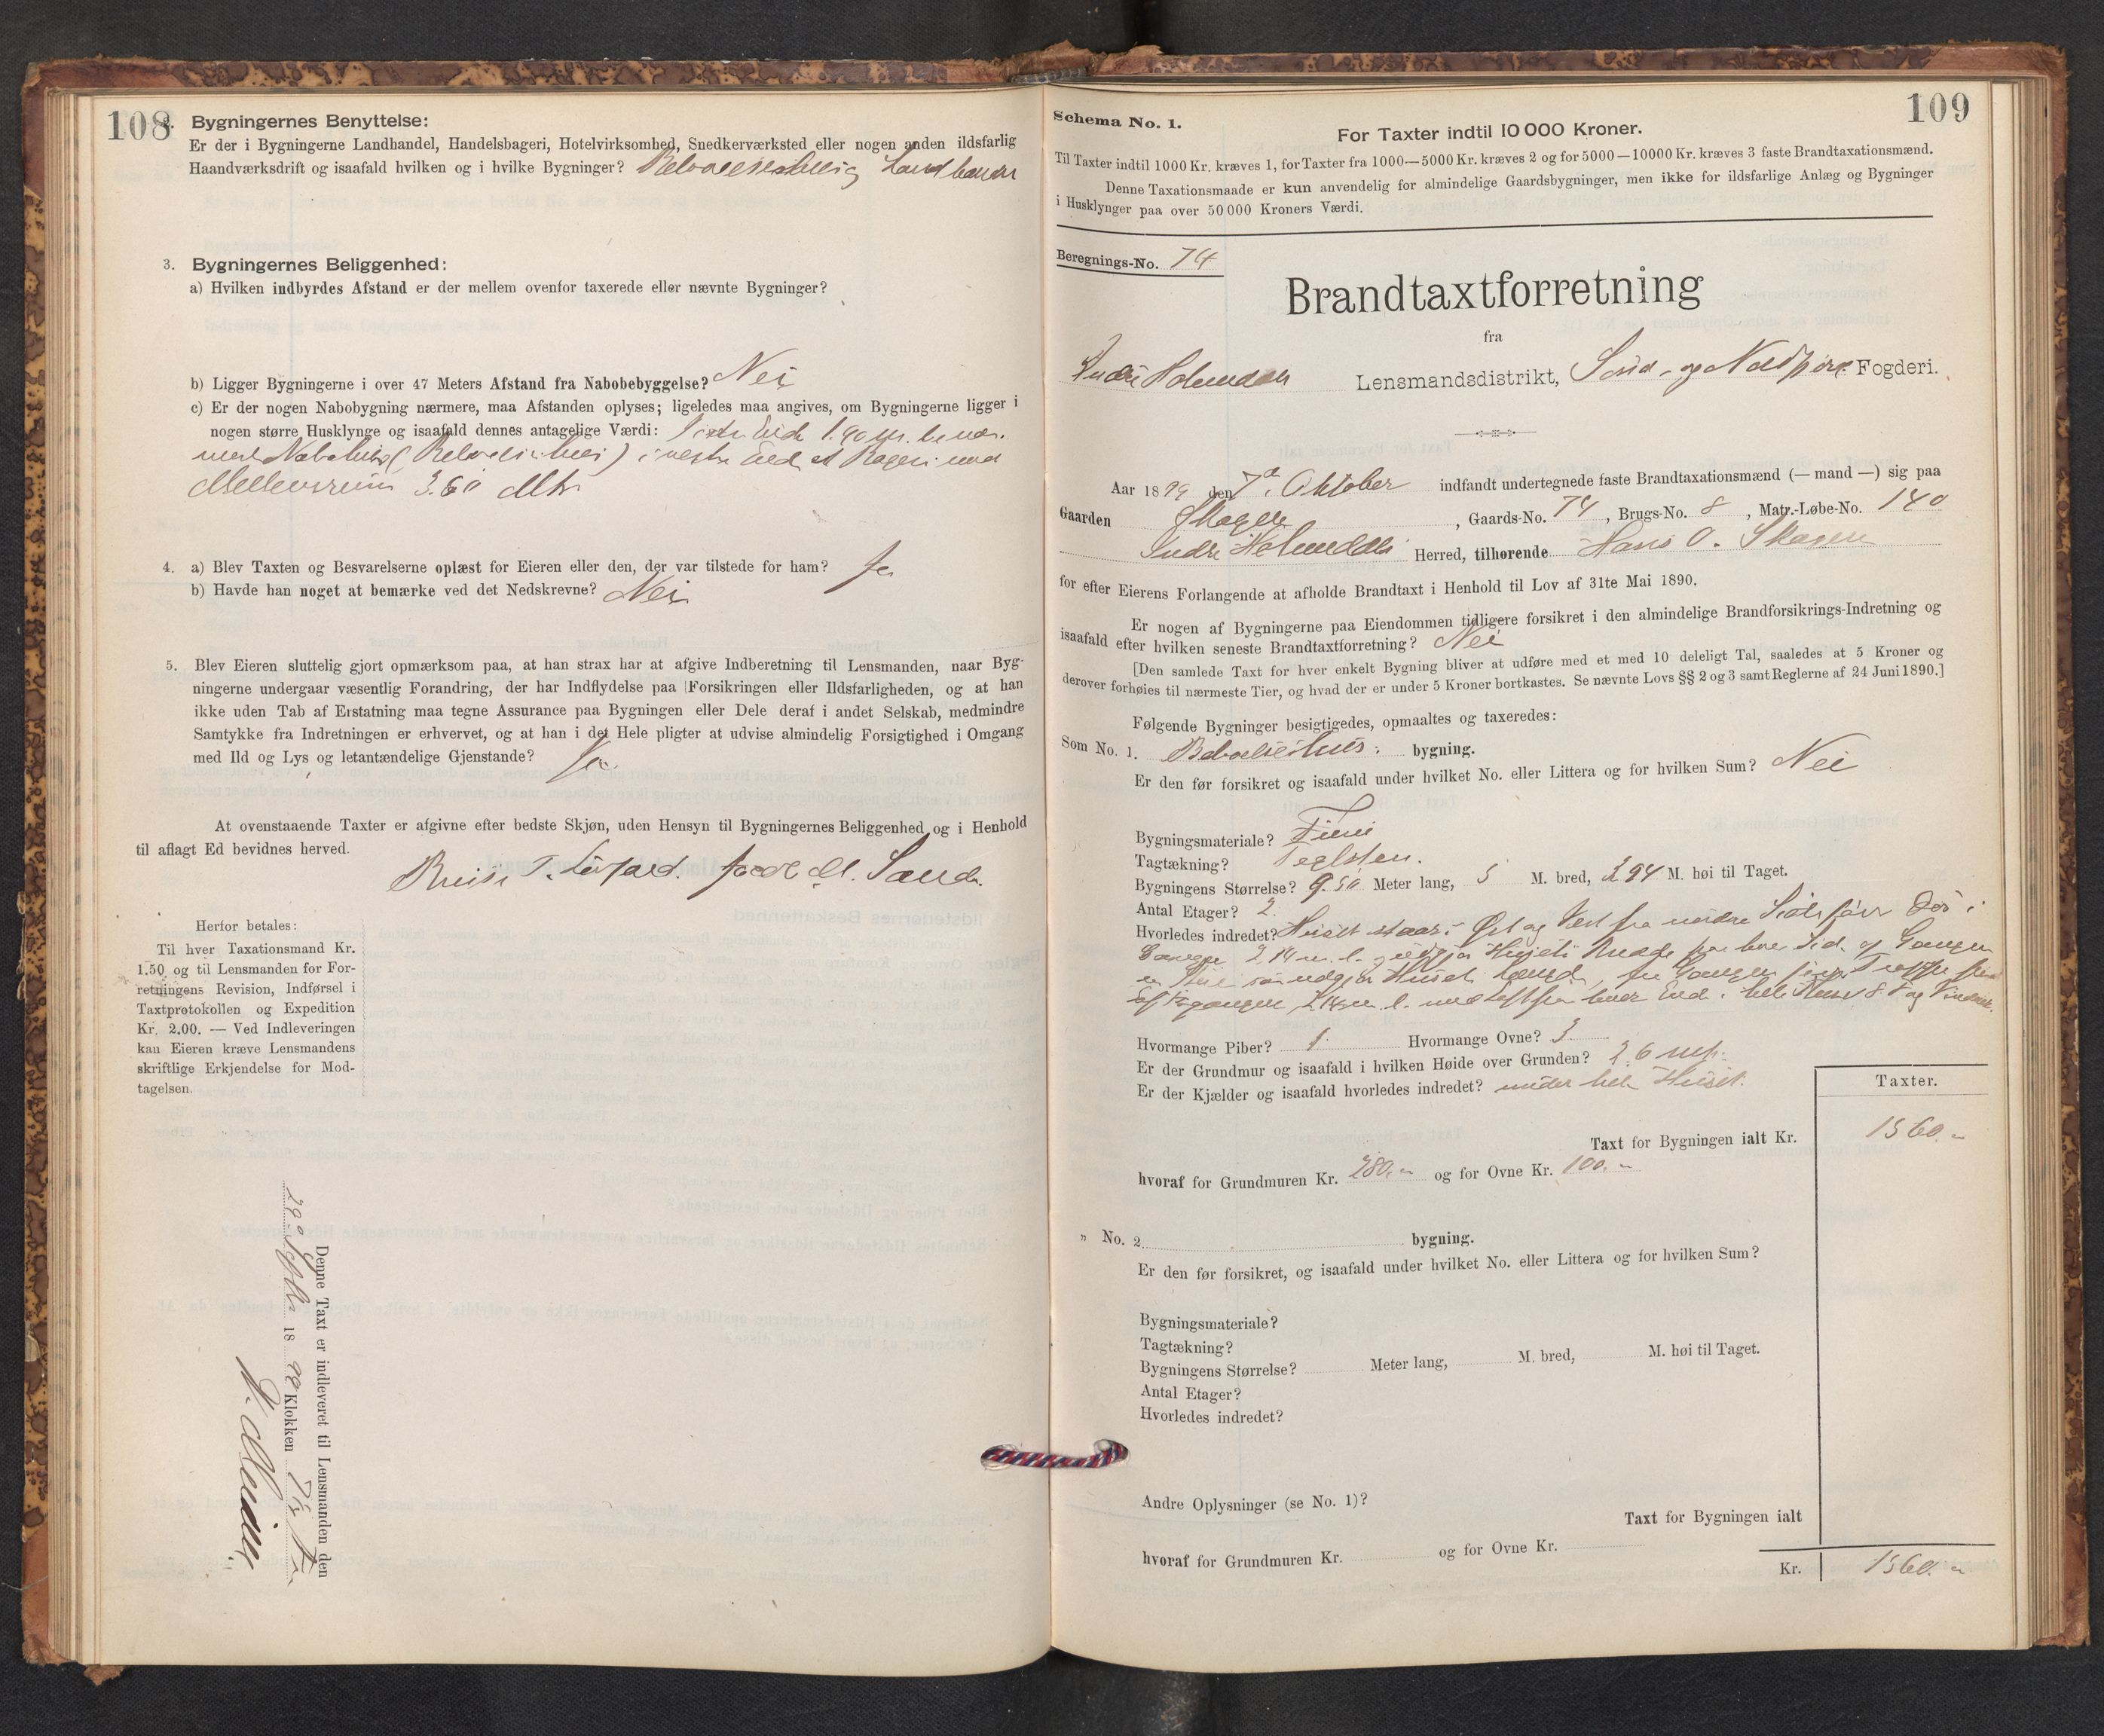 108
2. Bygningernes Benyttelse:
Er der i Bygningerne Landhandel, Handelsbageri, Hotelvirksomhed, Snedkerværksted eller nogen anden ildsfarlig
Haandværksdrift og isaafald hvilken og i hvilke Bygninger?
3. Bygningernes Beliggenhed:
a) Hvilken indbyrdes Afstand er der mellem ovenfor taxerede eller nævnte Bygninger?
b) Ligger Bygningerne i over 47 Meters Afstand fra Nabobebyggelse? Nei
c) Er der nogen Nabobygning nærmere, maa Afstanden oplyses; ligeledes maa angives, om Bygningerne ligger i
nogen større Husklynge og isaafald dennes antagelige Værdi: 1.90 m.
med Nabohus ( ) i
Mellemrum 3.60 Mtr
4. a) Blev Taxten og Besvarelserne oplæst for Eieren eller den, der var tilstede for ham? Ja
b) Havde han noget at bemærke ved det Nedskrevne? Nei
5. Blev Eieren sluttelig gjort opmærksom paa, at han strax har at afgive Indberetning til Lensmanden, naar Byg-
ningerne undergaar væsentlig Forandring, der har Indflydelse paa Forsikringen eller Ildsfarligheden, og at han
ikke uden Tab af Erstatning maa tegne Assurance paa Bygningen eller Dele deraf i andet Selskab, medmindre
Samtykke fra Indretningen er erhvervet, og at han i det Hele pligter at udvise almindelig Forsigtighed i Omgang
med Ild og Lys og letantændelige Gjenstande? Ja.
At ovenstaaende Taxter er afgivne efter bedste Skjøn, uden Hensyn til Bygningernes Beliggenhed og i Henhold
til aflagt Ed bevidnes herved.
Herfor betales:
Til hver Taxationsmand Kr.
1.50 og til Lensmanden for For-
retningens Revision, Indførsel i
Taxtprotokollen og Expedition
Kr. 2.00. — Ved Indleveringen
kan Eieren kræve Lensmandens
skriftlige Erkjendelse for Mod-
tagelsen.
Denne Taxt er indleveret til Lensmanden den
18 Klokken
109
Schema No. 1.
For Taxter indtil 10 000 Kroner.
Til Taxter indtil 1000 Kr. kræves 1, for Taxter fra 1000—5000 Kr. kræves 2 og for 5000—10000 Kr. kræves 3 faste Brandtaxationsmænd.
Denne Taxationsmaade er kun anvendelig for almindelige Gaardsbygninger, men ikke for ildsfarlige Anlæg og Bygninger
i Husklynger paa over 50 000 Kroners Værdi.
Beregnings-No. 74
Brandtaxtforretning
fra
Indre Holmedals Lensmandsdistrikt, Sønd- og Nordfjord Fogderi.
Aar 1899 den 7de Oktober indfandt undertegnede faste Brandtaxationsmænd (— mand —) sig paa
Gaarden , Gaards-No. 74, Brugs-No. 8, Matr.-Løbe-No. 140
Indre Holmedals Herred, tilhørende Hans O. Skagen
for efter Eierens Forlangende at afholde Brandtaxt i Henhold til Lov af 31te Mai 1890.
Er nogen af Bygningerne paa Eiendommen tidligere forsikret i den almindelige Brandforsikrings-Indretning og
isaafald efter hvilken seneste Brandtaxtforretning? Nei
[Den samlede Taxt for hver enkelt Bygning bliver at udføre med et med 10 deleligt Tal, saaledes at 5 Kroner og
derover forhøies til nærmeste Tier, og hvad der er under 5 Kroner bortkastes. Se nævnte Lovs §§ 2 og 3 samt Reglerne af 24 Juni 1890.]
Følgende Bygninger besigtigedes, opmaaltes og taxeredes:
Som No. 1. bygning.
Er den før forsikret og isaafald under hvilket No. eller Littera og for hvilken Sum? Nei
Bygningsmateriale?
Tagtækning? Teglsten.
Bygningens Størrelse? 9.50 Meter lang, 5 M. bred, M. høi til Taget.
Antal Etager? 2.
Hvorledes indredet? Huset staar i Øst og Vest fra
Hvormange Piber? 1 Hvormange Ovne? 3
Er der Grundmur og isaafald i hvilken Høide over Grunden?
Er der Kjælder og isaafald hvorledes indredet? under hele Huset.
Taxter.
Taxt for Bygningen ialt Kr. 1560.-
hvoraf for Grundmuren Kr. 280.- og for Ovne Kr. 100.-
" No. 2. bygning.
Er den før forsikret, og isaafald under hvilket No. eller Littera og for hvilken Sum?
Bygningsmateriale?
Tagtækning?
Bygningens Størrelse? Meter lang, M. bred, M. høi til Taget.
Antal Etager?
Hvorledes indredet?
Andre Oplysninger (se No. 1)?
Taxt for Bygningen ialt
hvoraf for Grundmuren Kr. og for Ovne Kr.
Kr. 1560.-